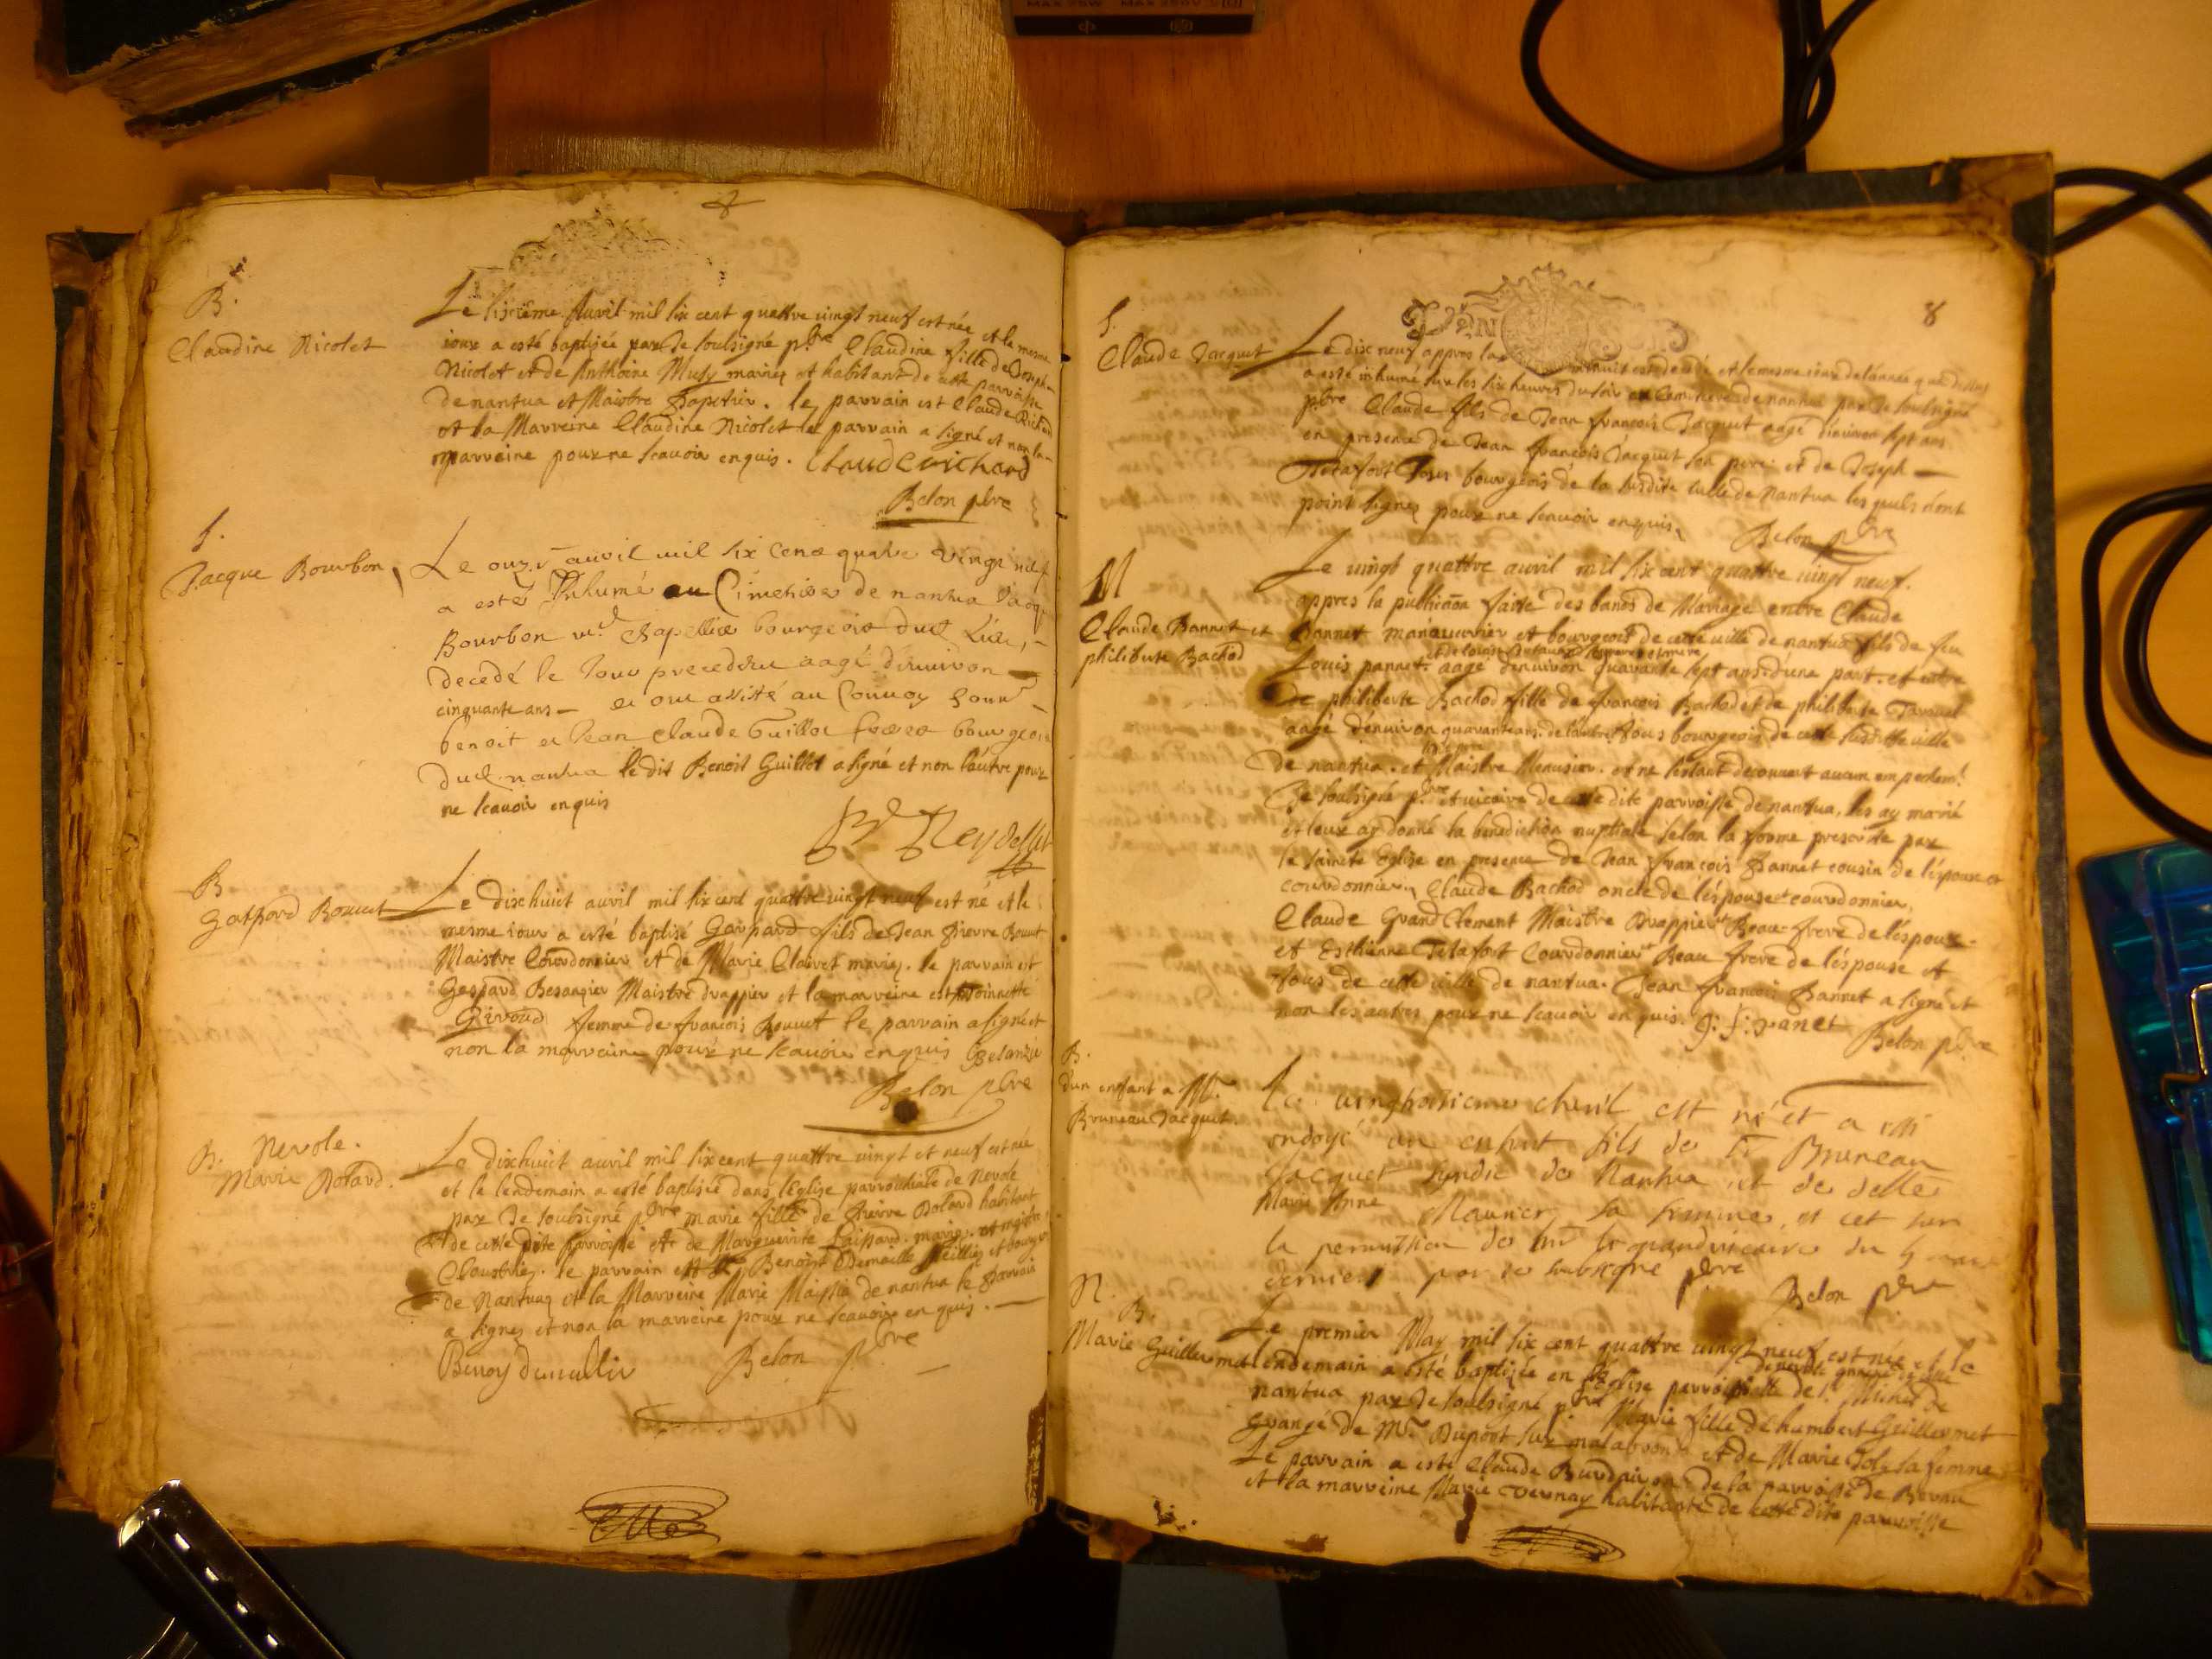 B.
Claudine Nicolet
Le sixième Auvril mil six cent quattre vingt neuf est née et le mesme
iour a esté baptisée par Je soubsigné pbre Claudine fille de Joseph
Nicolet et de Anthoine Musy mariez et habitant de cette parroisse
de nantua et Maistre Papetier. le parrain est Claude Richard
et la Marreine Claudine Nicolet le parrain a signé et non la
marreine pour ne scavoir enquis. Claude richard
Belon pbre
S.
Jacque Bourbon
Le auvril mil six cent quatre vingt neuf
a esté Inhumé au Cimetiere de nantua Jacq
Bourbon md chapellier bourgeois dud. Lieu,
decedé le Jour precedent aagé d'environ
cinquante ans et ont assisté au Convoy
benoit et Jean Claude Guillot freres bourgeois
dud. nantua ledit Benoit Guillot a signé et non l'autre pour
ne scavoir enquis
B Reydellet
B
Gaspard Bouvet
Le dixhuict auvril mil six cent quattre vingt neuf est né et le
mesme iour a esté baptisé Gaspard fils de Jean Pierre Bouvet
Maistre Courdonnier et de Marie Clairet mariez. le parrain est
Gaspard Besançier Maistre drappier et la marreine est Antoinette
Girond femme de francois Bouvet le parrain a signé et
non la marreine pour ne scavoir enquis
Belon pbre
B. Nerole.
Marie Bolard.
Le dixhuict auvril mil six cent quattre vingt et neuf est née
et le lendemain a esté baptisée dans l'Eglise parroichiale de Nerole
par Je soubsigné pbre marie fille de Pierre Bolard habitant
de cette dite parroisse et de Marguerite mariez
le parrain est Benoist et bourgeois
de Nantua et la Marreine Marie de nantua le parrain
a signez et non la marreine pour ne scavoir enquis.
Belon pbre
8
S.
Claude Jacquet
Le dix neuf appres la minuit est decedé et le mesme iour de l'année que dessus
a esté inhumé sur les six heures du soir au Cimetiere de nantua par Je soubsigné
pbre Claude fils de Jean francois Jacquet aagé d'environ sept ans
en presence de Jean francois Jacquet son pere et de Joseph
Tetafort Tous bourgeois de la susdite ville de Nantua les quels n'ont
point signez pour ne scavoir enquis.
Belon pbre
M
Claude Pannet et
philiberte Bachod
Le vingt quattre auvril mil six cent quattre vingt neuf.
appres la publicaõn faite des bancs de Mariage entre Claude
Pannet manœuvrier et bourgeois de cette ville de nantua fils de feu
Louis pannet aagé d'environ quarante sept ans d'une part. et entre
de philiberte Bachod fille de francois Bachod et de philiberte
aagé d'environ quarante ans. de l'autre Tous bourgeois de cette susditte ville
de nantua. et Maistre Menusier. et ne s'estant decouvert aucun empechemt
Je soubsigné pbre et vicaire de cette dite parroisse de nantua, les ay marié
et leur ay donné la benediction nuptiale selon la forme prescrite par
la saincte Eglise en presence de Jean francois Pannet cousin de l'époux et
courdonnier, Claude Bachod oncle de l'espouse et courdonnier,
Claude Grand Clement Maistre Drappier et Beau-frere de l'espoux
et Esthienne Tetafort Courdonnier et Beau frere de l'épouse et
Tous de cette ville de nantua. Jean francois Pannet a signé et
non les autres pour ne scavoir enquis. J: f: panet
Belon pbre
B.
d'un enfant a Mr.
Bruneau Jacquet.
Le vinghuitieme est né et a esté
ondoyé un enfant fils de Sr Bruneau
Jacquet syndic de Nantua et de delle
Marie Anne Maunier sa femme, et cet sur
la permission de Mr le grand vicaire du
dernier par je soubsigné pbre
Belon pbre
N.
B.
Marie Guillermet
Le premier May mil six cent quattre vingt neuf est née et le
lendemain a esté baptizée en l'Eglise parroissielle de S. Michel de
nantua par Je soubsigné pbre Marie fille d'humbert Guillermet
grangé de Mr. Duport sur et de Marie Joly sa femme
Le parrain a esté Claude Burdairon de la parroisse de
et la marreine Marie vernay habitante de cette dite parroisse